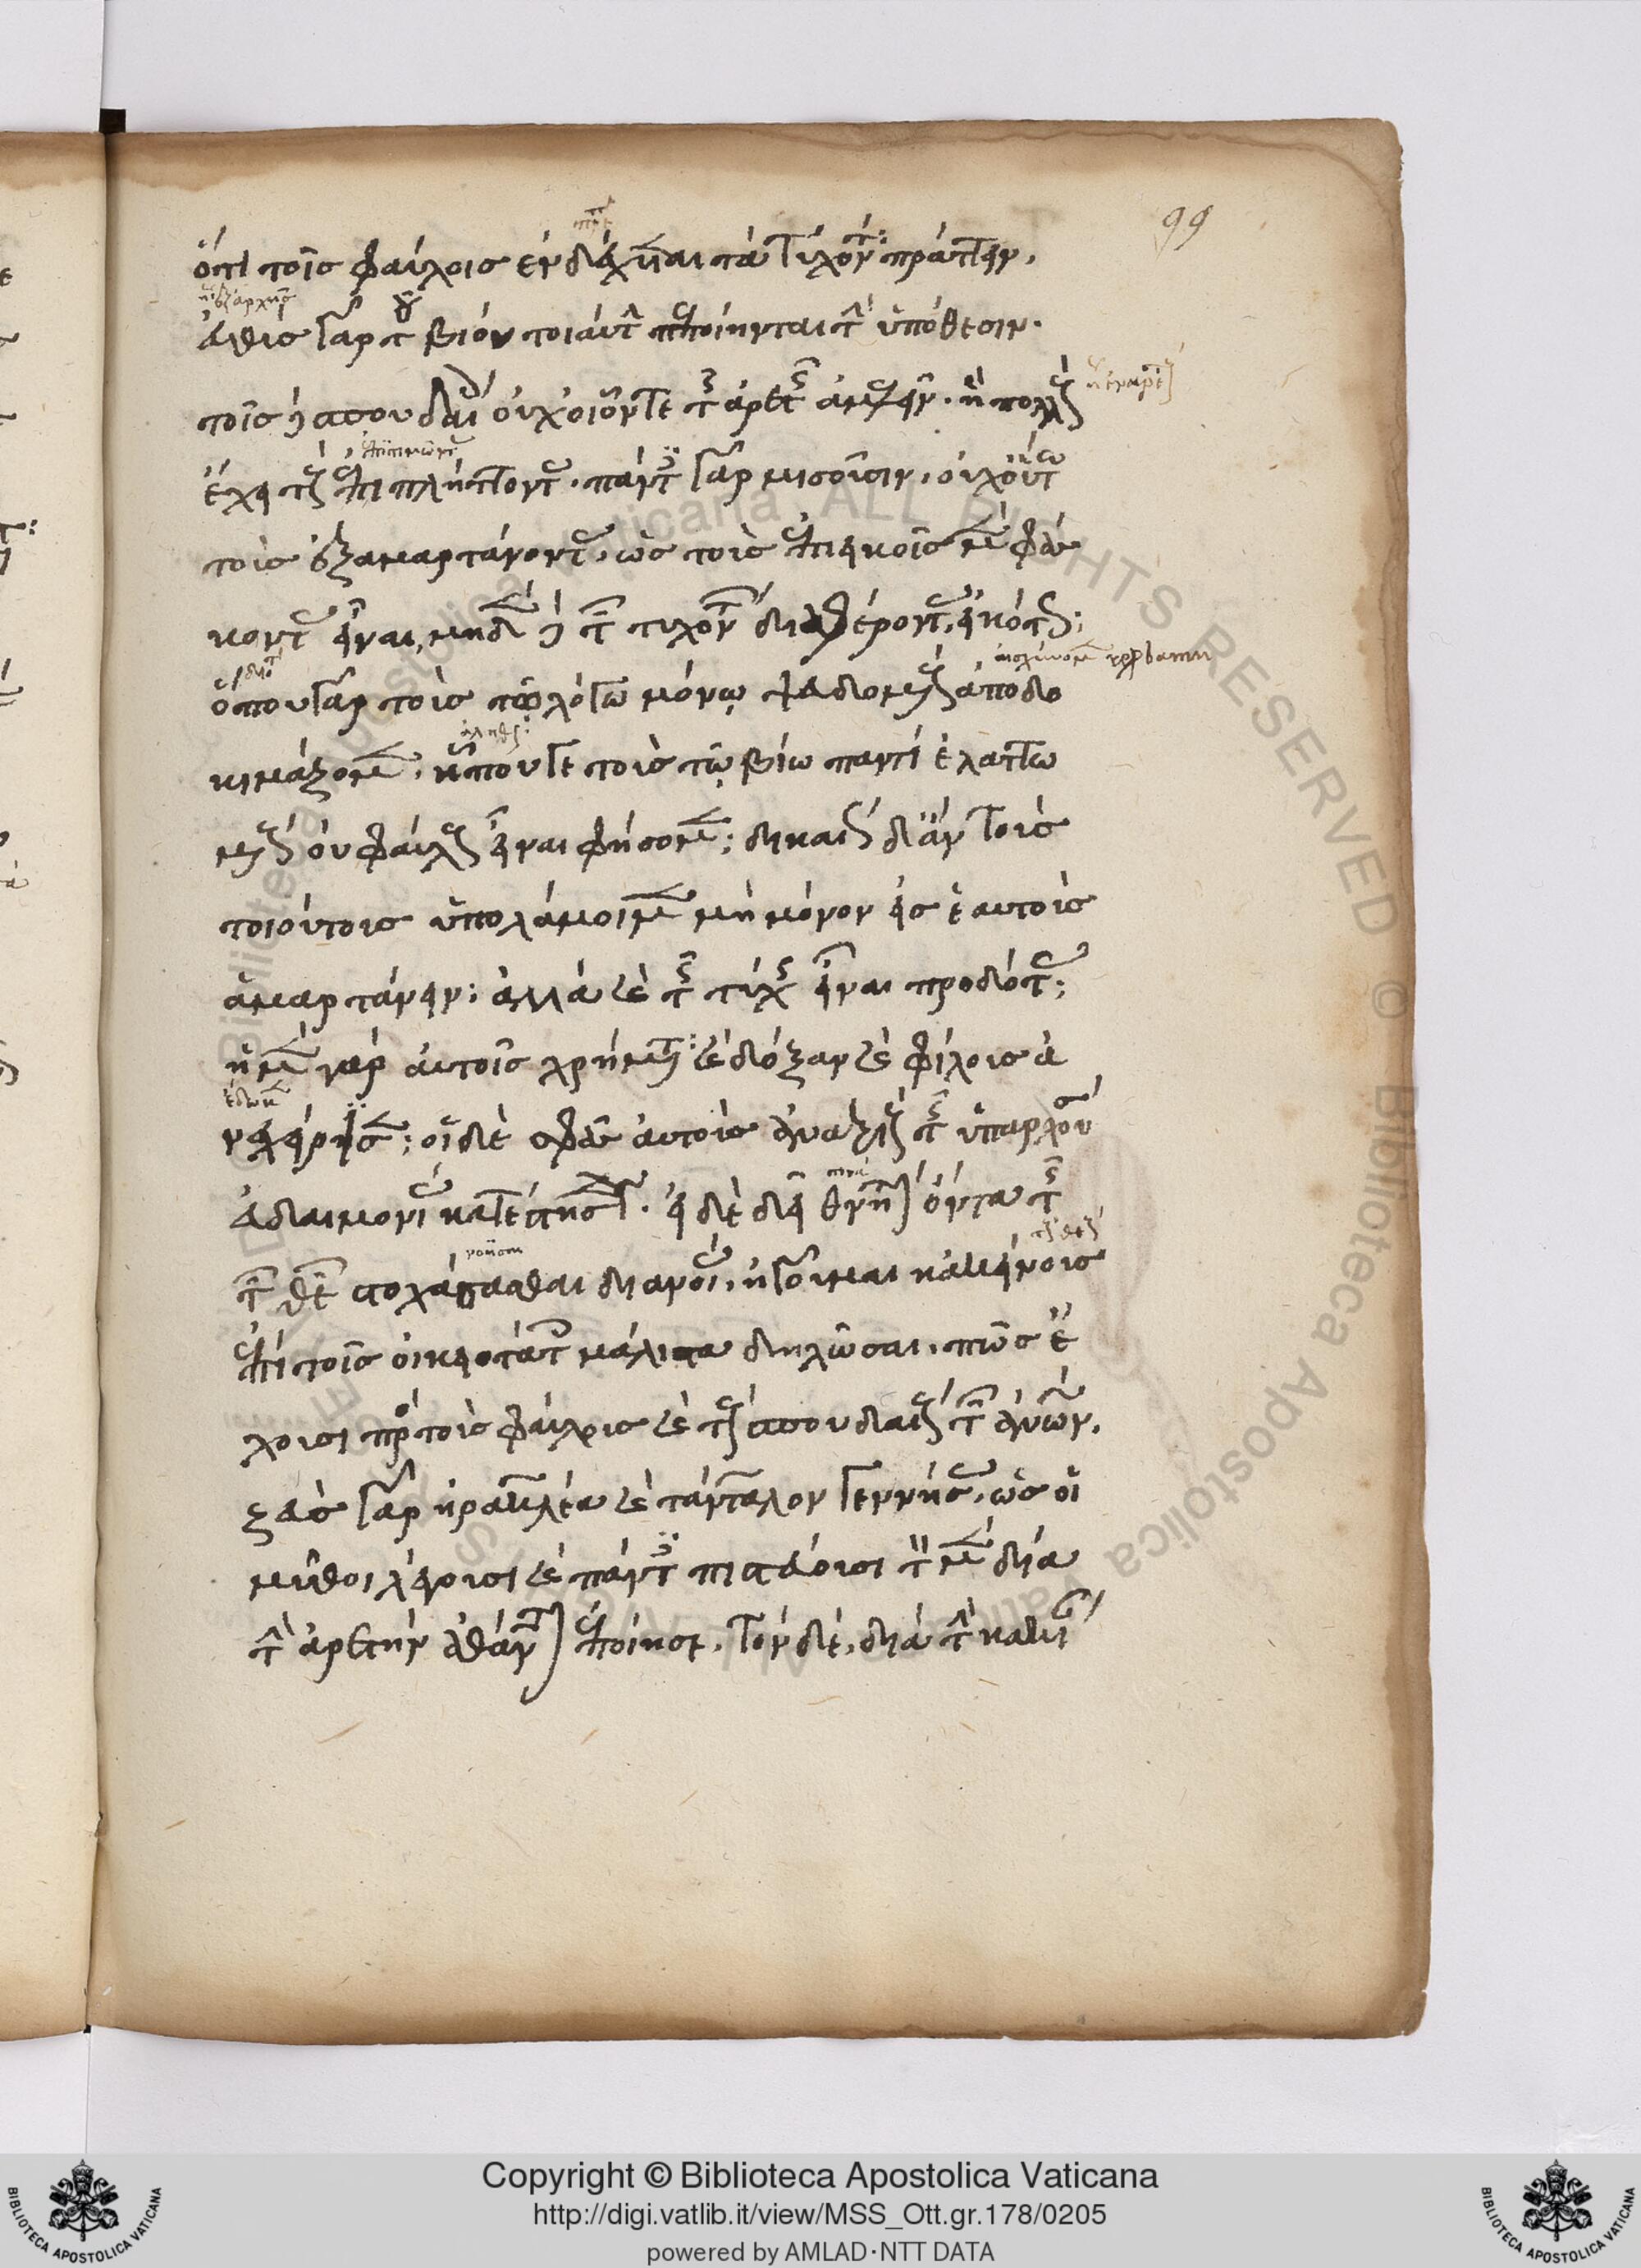 99
ὅτι τοῖς φαύλοις ἐνδέχεται τὰ τυχόντα πράττειν.
εὐθὺς γὰρ τοῦ βίου τοιαύτην πεποίηνται τὴν ὑπόθεσιν.
τοῖς δὲ σπουδαίοις οὐχ οἷόν τε τῆς ἀρετῆς ἀμελεῖν. ἢ πολλοὺς
ἕχει τοὺς ἐπιπλήττοντας. πάντες γὰρ μισοῦσιν, οὐχ οὕτω
τοὺς ἐξαμαρτάνοντας, ὡς τοὺς ἐπιεικεῖς μὲν φά
σκοντας εἶναι, μηδὲν δὲ τῶν τυχόντων διαφέροντας, εἰκότως;
ὅπου γὰρ τοὺς τῷ λόγῳ μόνῳ ψευδομένους ἀποδο
κιμάζομεν, ἦ που γε τοὺς τῷ βίῳ παντὶ ἐλαττου
μένους οὐ φαύλους εἶναι φήσομεν; δικαίως δ' ἂν τοὺς
τοιούτους ὑπολάβοιμεν μὴ μόνον εἰς ἑαυτοὺς
ἁμαρτάνειν; ἀλλὰ καὶ τῆς τύχης εἶναι προδότας;
ἡ μὲν γὰρ αὐτοῖς χρήματα καὶ δόξαν καὶ φίλους ἐ
νεχείρισεν; οἱ δὲ σφᾶς αὐτοὺς ἀναξίους τῆς ὑπαρχούσης
εὐδαιμονίας κατέστησαν. εἰ δὲ δεῖ θνητὸν ὄντα τῆς
τῶν θεῶν στοχάσασθαι διανοίας, ἡγοῦμαι κἀκείνους
ἐπὶ τοῖς οἰκειοτάτοις μάλιστα δηλῶσαι, πῶς ἔ
χουσι πρὸς τοὺς φαύλους καὶ τοὺς σπουδαίους τῶν ἀνθρώπων.
ζεὺς γὰρ ἡρακλέα καὶ τάνταλον γεννήσας, ὡς οἱ
μῦθοι λέγουσι καὶ πάντες πιστεύουσι τὸν μὲν διὰ
τὴν ἀρετὴν ἀθάνατον ἐποίησε, τὸν δὲ, διὰ τὴν κακίαν
Copyright © Biblioteca Apostolica Vaticana
http://digi.vatlib.it/view/MSS_Ott.gr.178/0205
powered by AMLAD·NTT DATA